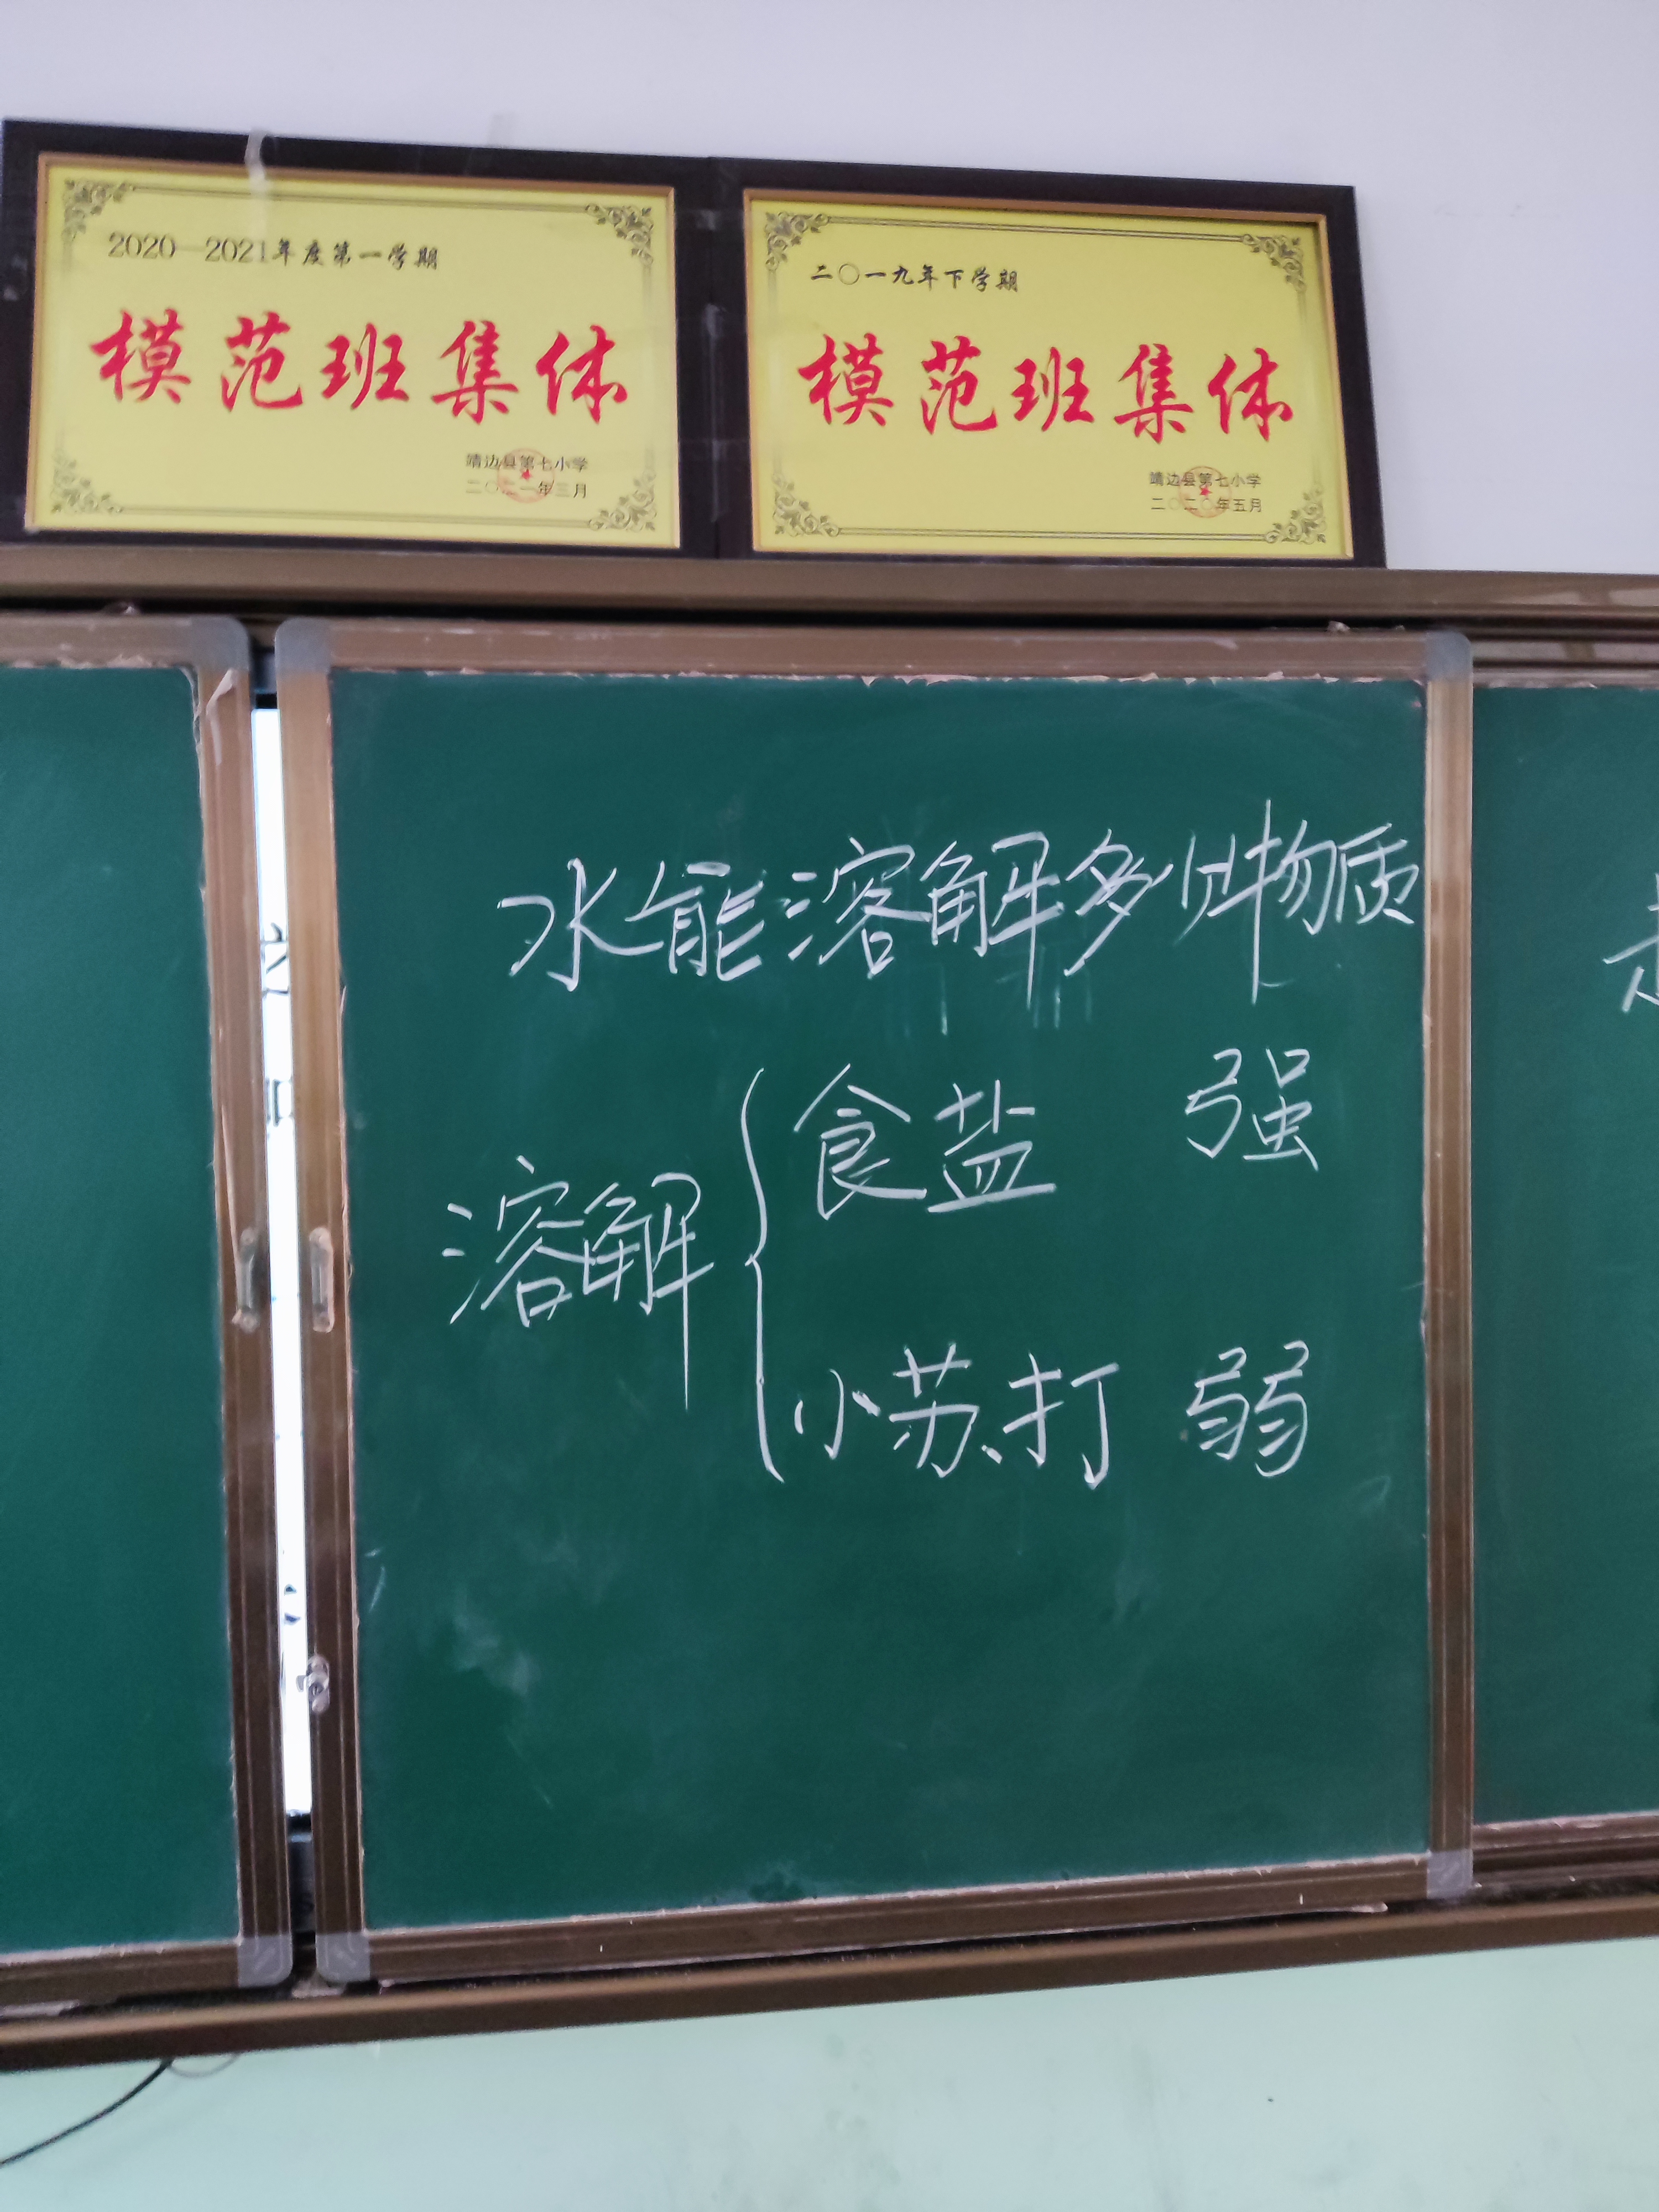 2020—2021年度第一学期
模范班集体
靖边县第七小学
二〇二一年三月
二〇一九年下学期
模范班集体
靖边县第七小学
二〇二〇年五月
水能溶解多少物质
溶解
食盐 强
小苏打 弱